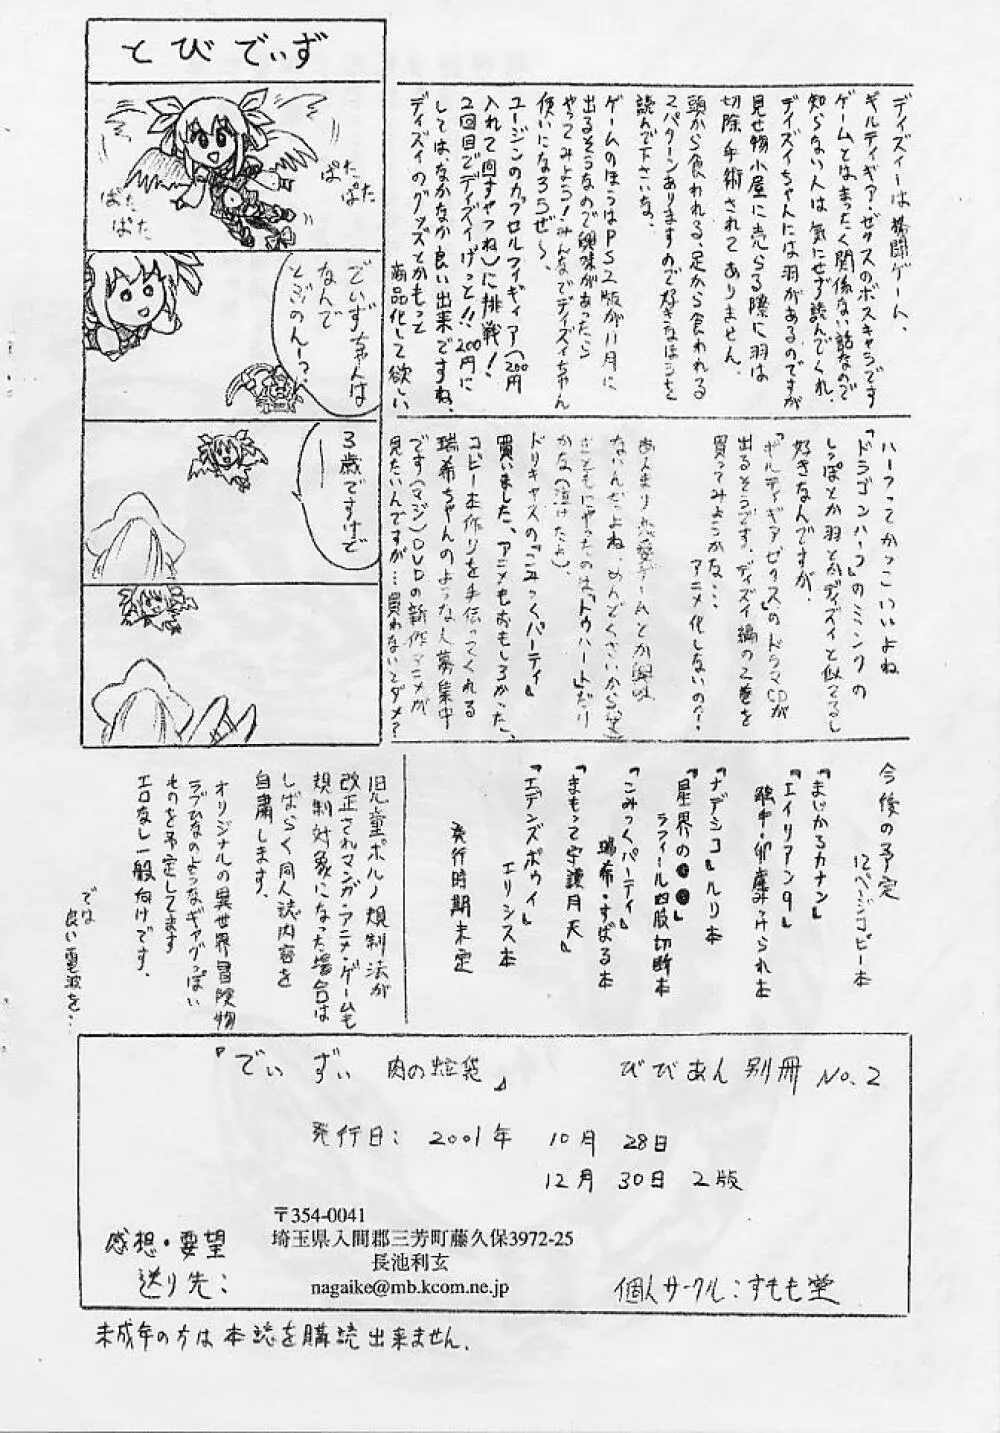 とびでぃず
ぱた
ぱた
ぱた
ぱた
でぃずちゃんは
なんで
とぶのんー?
3歳ですけど
ー
ディズィーは格闘ゲーム、
ギルティギア・ゼクスのボスキャラです
ゲームとはまったく関係ない話なので
知らない人は気にせず読んでくれ。
ディズィちゃんには羽があるのですが
見せ物小屋に売らる際に羽は
切除手術されてありません。
頭から食われる、足から食われる
2パターンありますので好きなほうを
読んで下さいな。
ゲームのほうはPS2版が11月に
出るそうなので興味があったら
やってみよう!みんなでディズィちゃん
使いになろうぜ〜、
ユージンのカプセルフィギィア(200円
入れて回すヤツね)に挑戦!
2回目でディズィげっと!!200円に
しては、なかなか良い出来ですね、
ディズィのグッズとかもっと
商品化して欲しい
ハーフってかっこいいよね
『ドラゴンハーフ』のミンクの
しっぽとか羽とかディズィと似てるし
好きなんですが、
『ギルティギアゼクス』のドラマCDが
出るそうです。ディズィ編の2巻を
買ってみようかな…
アニメ化しないの?
あんまり恋愛ゲームとか興味
ないんだよね、めんどくさいから(笑)
まともにやったのは、『トゥハート』だけ
かな(泣けたよ)、
ドリキャスの『こみっくパーティ』
買いました、アニメもおもしろかった、
コピー本作りを手伝ってくれる
瑞希ちゃんのような人募集中
です(マジ)DVDの新作アニメが
見たいんですが…買わないとダメ?
今後の予定
12ページコピー本
『まじかるカナン』
『エイリアン9』
・卵産みつけられ本
『ナデシコ』ルリ本
『星界の●●』
ラフィール四肢切断本
『こみっくパーティ』
瑞希・すばる本
『まもって守護月天』
『エデンズボゥイ』
エリシス本
発行時期未定
児童ポルノ規制法が
改正されマンガ・アニメ・ゲームも
規制対象になった場合は
しばらく同人誌内容を
自粛します。
オリジナルの異世界冒険物
ラブひなのようなギャグっぽい
ものを予定してます
エロなし一般向けです。
では
良い電波を…
『でぃずぃ 肉の袋』 びびあん 別冊 No.2
発行日: 2001年 10月 28日
12月 30日 2版
〒354-0041
埼玉県入間郡三芳町藤久保3972-25
長池利玄
nagaike@mb.kcom.ne.jp
感想・要望
送り先:
個人サークル:すもも堂
未成年の方は本誌を購読出来ません。